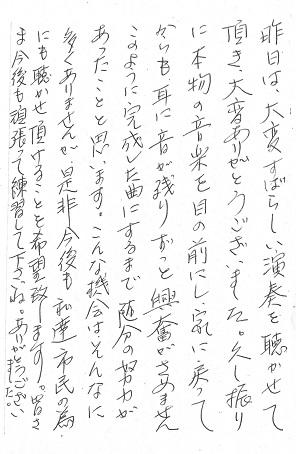 昨日は、大変すばらしい演奏を聴かせて
頂き、大変ありがとうございました。久し振り
に本物の音楽を目の前にし、家に戻って
からも耳に音が残りずっと興奮がさめません
このように完成した曲にするまで随分の努力が
あったことと思います。こんな機会はそんなに
多くありませんが、是非今後も私達市民の為
にも聴かせ頂けることを希望致します。皆さ
ま今後も頑張って練習して下さいね。ありがとうござい
ました。